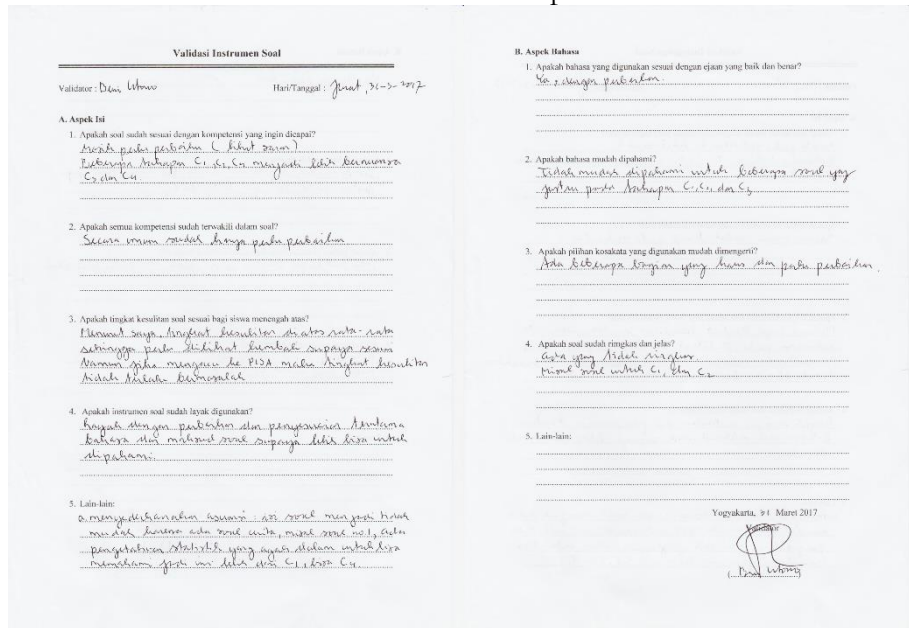 Validasi Instrumen Soal
Validator : Deni Utomo
Hari/Tanggal : Jumat, 31-3-2017
A. Aspek Isi
1. Apakah soal sudah sesuai dengan kompetensi yang ingin dicapai?
Masih perlu perbaikan ( lihat saran )
Beberapa tahapan C1, C2, C4 menjadi lebih bernuansa
C3 dan C4
2. Apakah semua kompetensi sudah terwakili dalam soal?
Secara umum sudah hanya perlu perbaikan
3. Apakah tingkat kesulitan soal sesuai bagi siswa menengah atas?
Menurut saya, tingkat kesulitan di atas rata-rata
sehingga perlu dilihat kembali supaya sesuai
Namun jika mengacu ke PISA maka tingkat kesulitan
tidak terlalu bermasalah
4. Apakah instrumen soal sudah layak digunakan?
Layak dengan perbaikan dan penyesuaian terutama
bahasa dan maksud soal supaya lebih bisa untuk
dipahami.
5. Lain-lain:
a. menyederhanakan asumsi : isi soal menjadi tidak
mudah karena ada soal cerita, misal soal no 1, ada
pengetahuan statistik yang agak dalam untuk bisa
memahami jadi ini lebih dari C1, bisa C4
B. Aspek Bahasa
1. Apakah bahasa yang digunakan sesuai dengan ejaan yang baik dan benar?
Ya, dengan perbaikan.
2. Apakah bahasa mudah dipahami?
Tidak mudah dipahami untuk beberapa soal yang
justru pada tahapan C1, C2, dan C3
3. Apakah pilihan kosakata yang digunakan mudah dimengerti?
Ada beberapa bagian yang harus dan perlu perbaikan.
4. Apakah soal sudah ringkas dan jelas?
ada yang tidak ringkas
Misal soal untuk C1, dan C2
5. Lain-lain:
Yogyakarta, 31 Maret 2017
Validator
( Deni Utomo